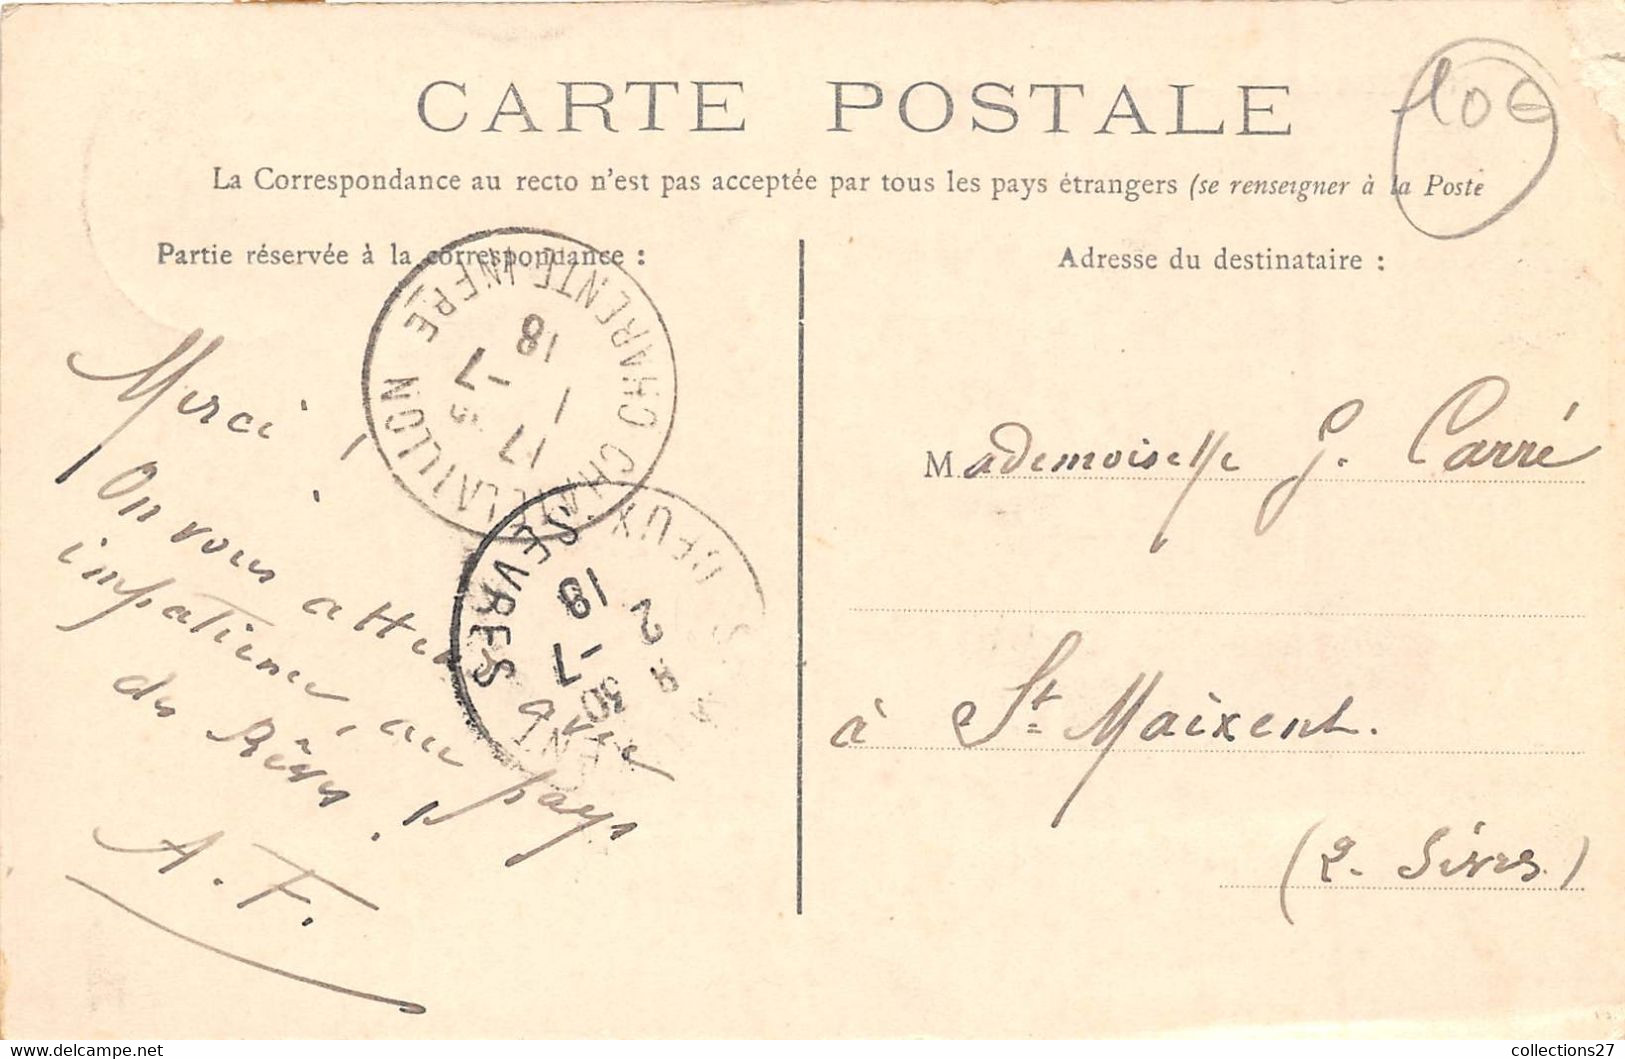 CARTE POSTALE
10€
La Correspondance au recto n'est pas acceptée par tous les pays étrangers (se renseigner à la Poste
Partie réservée à la correspondance :
Adresse du destinataire :
CHATELAILLON
CHARENTE INFRE
17
1 - 7
18
DEUX SEVRES
2
30
18 - 7
Merci,
On vous attend avec
impatience, au pays
du Rêve !
A. F.
Mademoiselle G. Carré
à St Maixent.
(2. Sèvres)
collections27